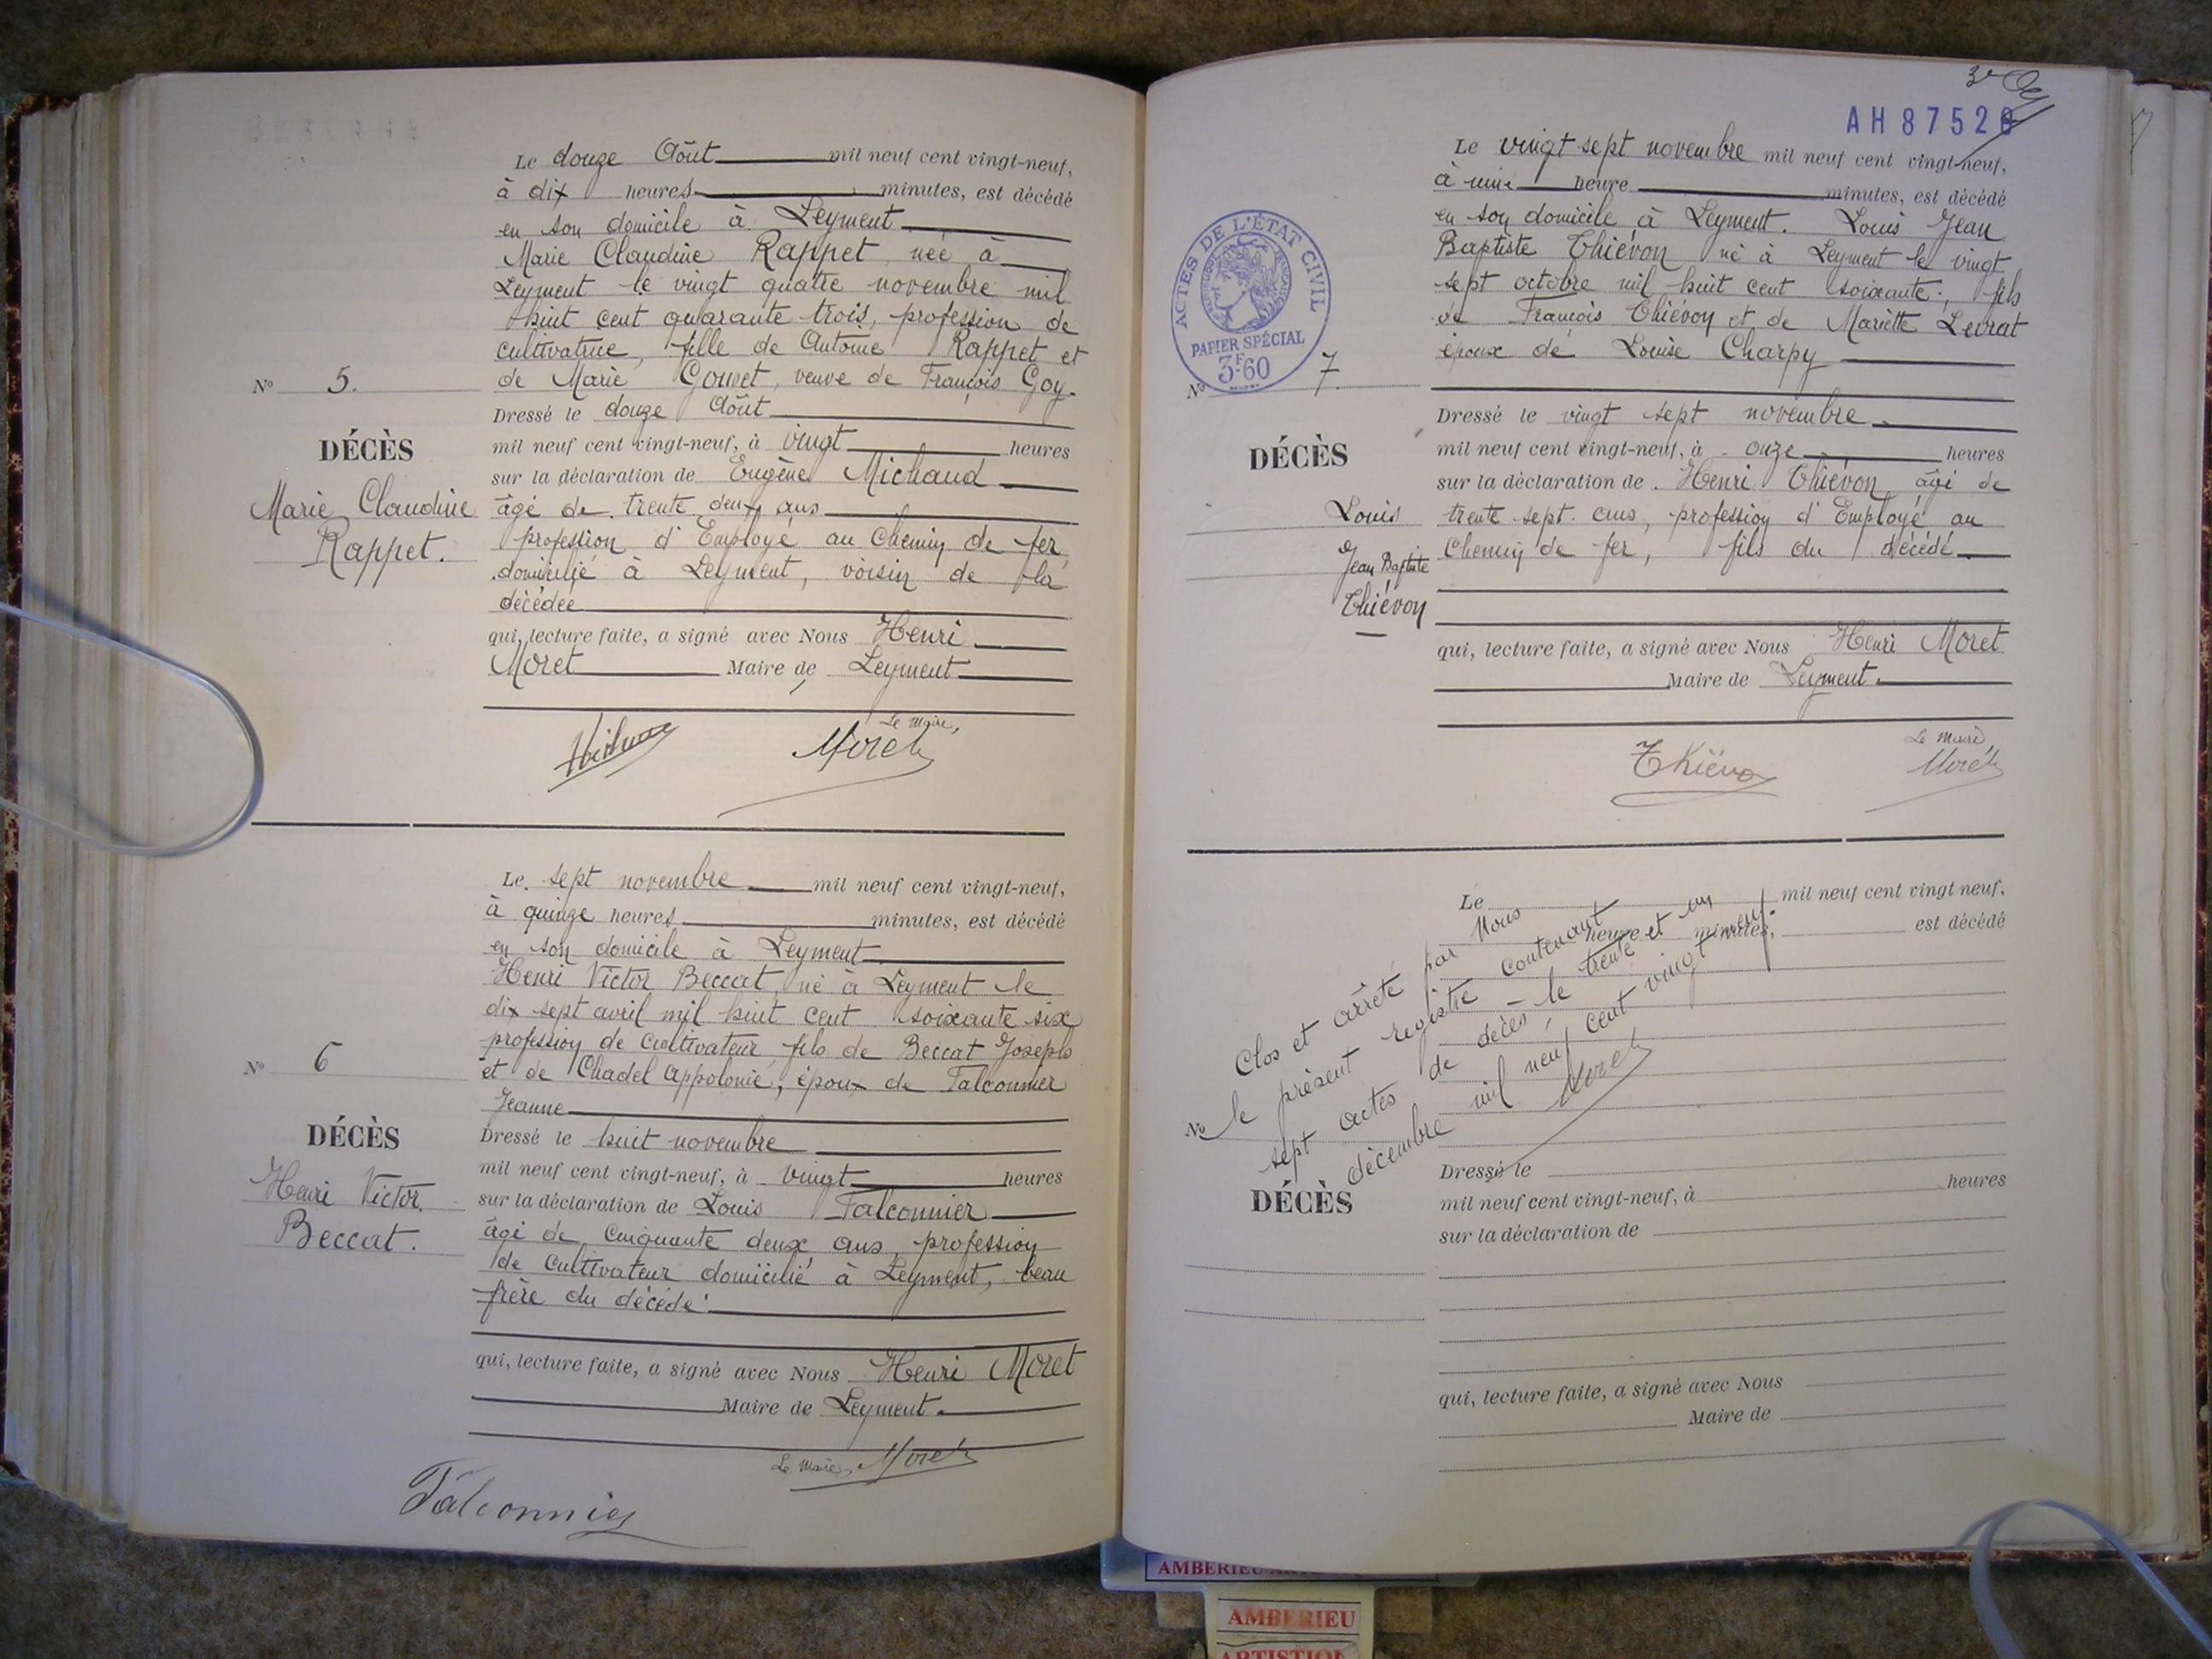 Le douze Août mil neuf cent vingt-neuf,
à dix heures minutes, est décédé
en son domicile à Leyment
Marie Claudine Rappet née à
Leyment le vingt quatre novembre mil
huit cent quarante trois, profession de
cultivatrice, fille de Antoine Rappet et
de Marie Gouvet, veuve de François Goy.
N° 5.
DÉCÈS
Marie Claudine
Rappet.
Dressé le douze Août
mil neuf cent vingt-neuf, à vingt heures
sur la déclaration de Eugène Michaud
âgé de trente deux ans
profession d'Employé au Chemin de fer
domicilié à Leyment, voisin de la
décédée
qui, lecture faite, a signé avec Nous Henri
Moret Maire de Leyment
Le Maire,
Moret
Le sept novembre mil neuf cent vingt-neuf,
à quinze heures minutes, est décédé
en son domicile à Leyment
Henri Victor Beccat, né à Leyment le
dix sept avril mil huit cent soixante six
profession de Cultivateur, fils de Beccat Joseph
et de Chadel Appolonie, époux de Falconnier
Jeanne
N° 6
DÉCÈS
Henri Victor
Beccat.
Dressé le huit novembre
mil neuf cent vingt-neuf, à vingt heures
sur la déclaration de Louis Falconnier
âgé de Cinquante deux ans, profession
de Cultivateur domicilié à Leyment, beau
frère du décédé.
qui, lecture faite, a signé avec Nous Henri Moret
Maire de Leyment.
Le Maire, Moret
Falconnier
AH 8752
Le vingt sept novembre mil neuf cent vingt-neuf,
à une heure minutes, est décédé
en son domicile à Leyment. Louis Jean
Baptiste Thiévon né à Leyment le vingt
sept octobre mil huit cent soixante; fils
de François Thiévon et de Mariette Levrat
époux de Louise Charpy
ACTES DE L'ÉTAT CIVIL
RÉPUBLIQUE FRANÇAISE
PAPIER SPÉCIAL
3F60
N° 7.
DÉCÈS
Louis
Jean Baptiste
Thiévon
Dressé le vingt sept novembre
mil neuf cent vingt-neuf, à onze heures
sur la déclaration de Henri Thiévon âgé de
trente sept ans, profession d'Employé au
Chemin de fer, fils du décédé
qui, lecture faite, a signé avec Nous Henri Moret
Maire de Leyment.
Thiévon
Le Maire
Moret
Le mil neuf cent vingt neuf,
heure et minutes, est décédé
Clos et arrêté par Nous
le présent registre contenant
sept actes de décès, le trente et un
décembre mil neuf cent vingt neuf.
Moret
N°
DÉCÈS
Dressé le
mil neuf cent vingt-neuf, à heures
sur la déclaration de
qui, lecture faite, a signé avec Nous
Maire de
AMBERIEU
AMBERIEU
ARTISTION